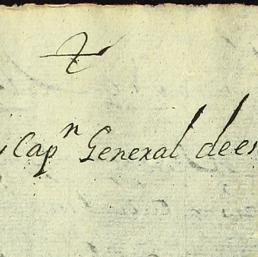 Capⁿ General de es